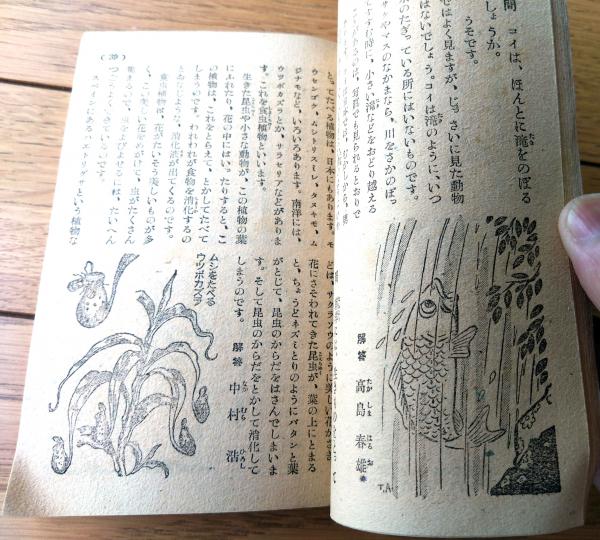 問 コイは、ほんとに滝をのぼる
しょうか。
うそです。
ではよく見ますが、じっさいに見た動物
はないでしょう。コイは滝のように、いつ
のたぎっている所にはいないものです。
サケやマスのなかまなら、川をさかのぼっ
てすすむ時に、小さい滝などをおどり越える
解答 高島春雄
たかしまはるお
T.A.
(39)
とってたべる植物は、日本にもあります。モ
ウセンゴケ、ムシトリスミレ、タヌキモ、ム
ジナモなど、いろいろあります。南洋には、
ウツボカズラとか、サラセリアなどがありま
す。これを食虫植物といいます。
生きた昆虫や小さな動物が、この植物の葉
にふれたり、花の中にはいったりすると、こ
の植物は、これをとらえて、とかしてたべて
しまうのです。われわれが食物を消化するの
とおなじような、消化液が出てくるのです。
食虫植物は、花がたいそう美しいものが多
く、この美しい花をめがけて、虫がたくさん
集まるので、虫をよびよせるには、たいへん
つごうよくできているのです。
スペインにあるハエジゴクという植物な
どは、サクラソウのように美しい花がさき
花にさそわれてきた昆虫が、葉の上にとまる
と、ちょうどネズミとりのようにパタンと葉
がとじて、昆虫のからだをはさんでしまいま
す。そして昆虫のからだをとかして消化して
しまうのです。
解答 中村浩
なかむらひろし
ムシをたべる
ウツボカズラ